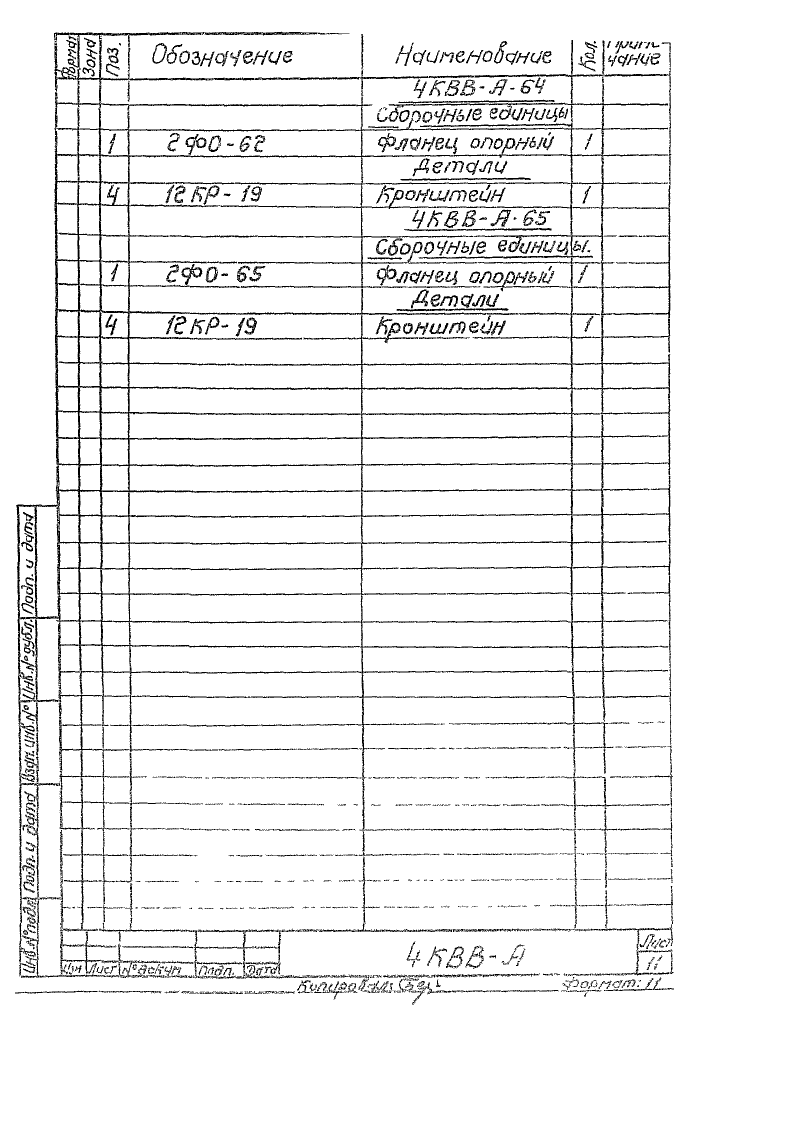 Зона Поз. Обозначение Наименование Кол. чание
4КВВ-А-64
Сборочные единицы
1 2ФО-62 Фланец опорный 1
Детали
4 12КР-19 Кронштейн 1
4КВВ-А-65
Сборочные единицы.
1 2ФО-65 Фланец опорный 1
Детали
4 12КР-19 Кронштейн 1
Подп. и дата
Инв.№дубл.
Взам. инв.№
Подп. и дата
Инв.№подл.
Изм Лист №докум Подп. Дата
4КВВ-А
Лист
11
Копировал:
Формат: 11